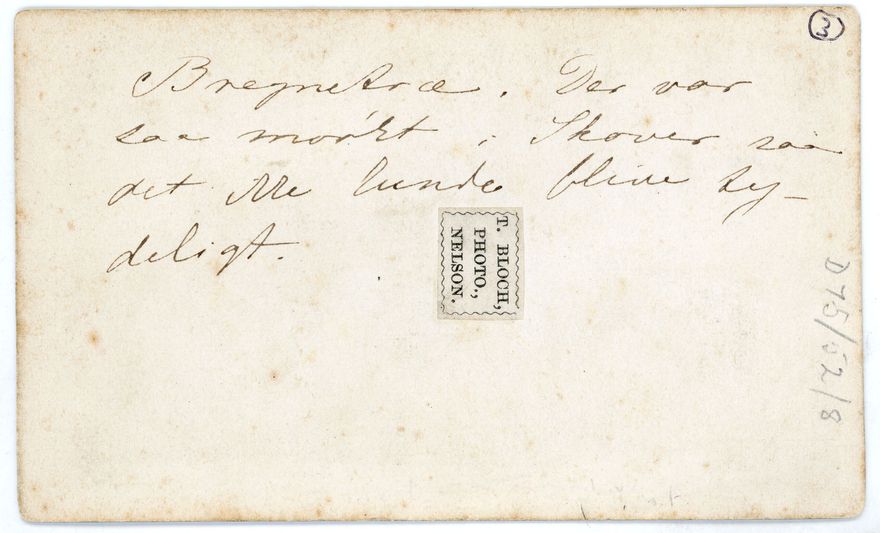 3
Bregnetræ. Der var
saa mörkt i Skoven saa
det ikke kunde blive ty-
deligt.
T. BLOCH,
PHOTO.,
NELSON.
D75/52/8